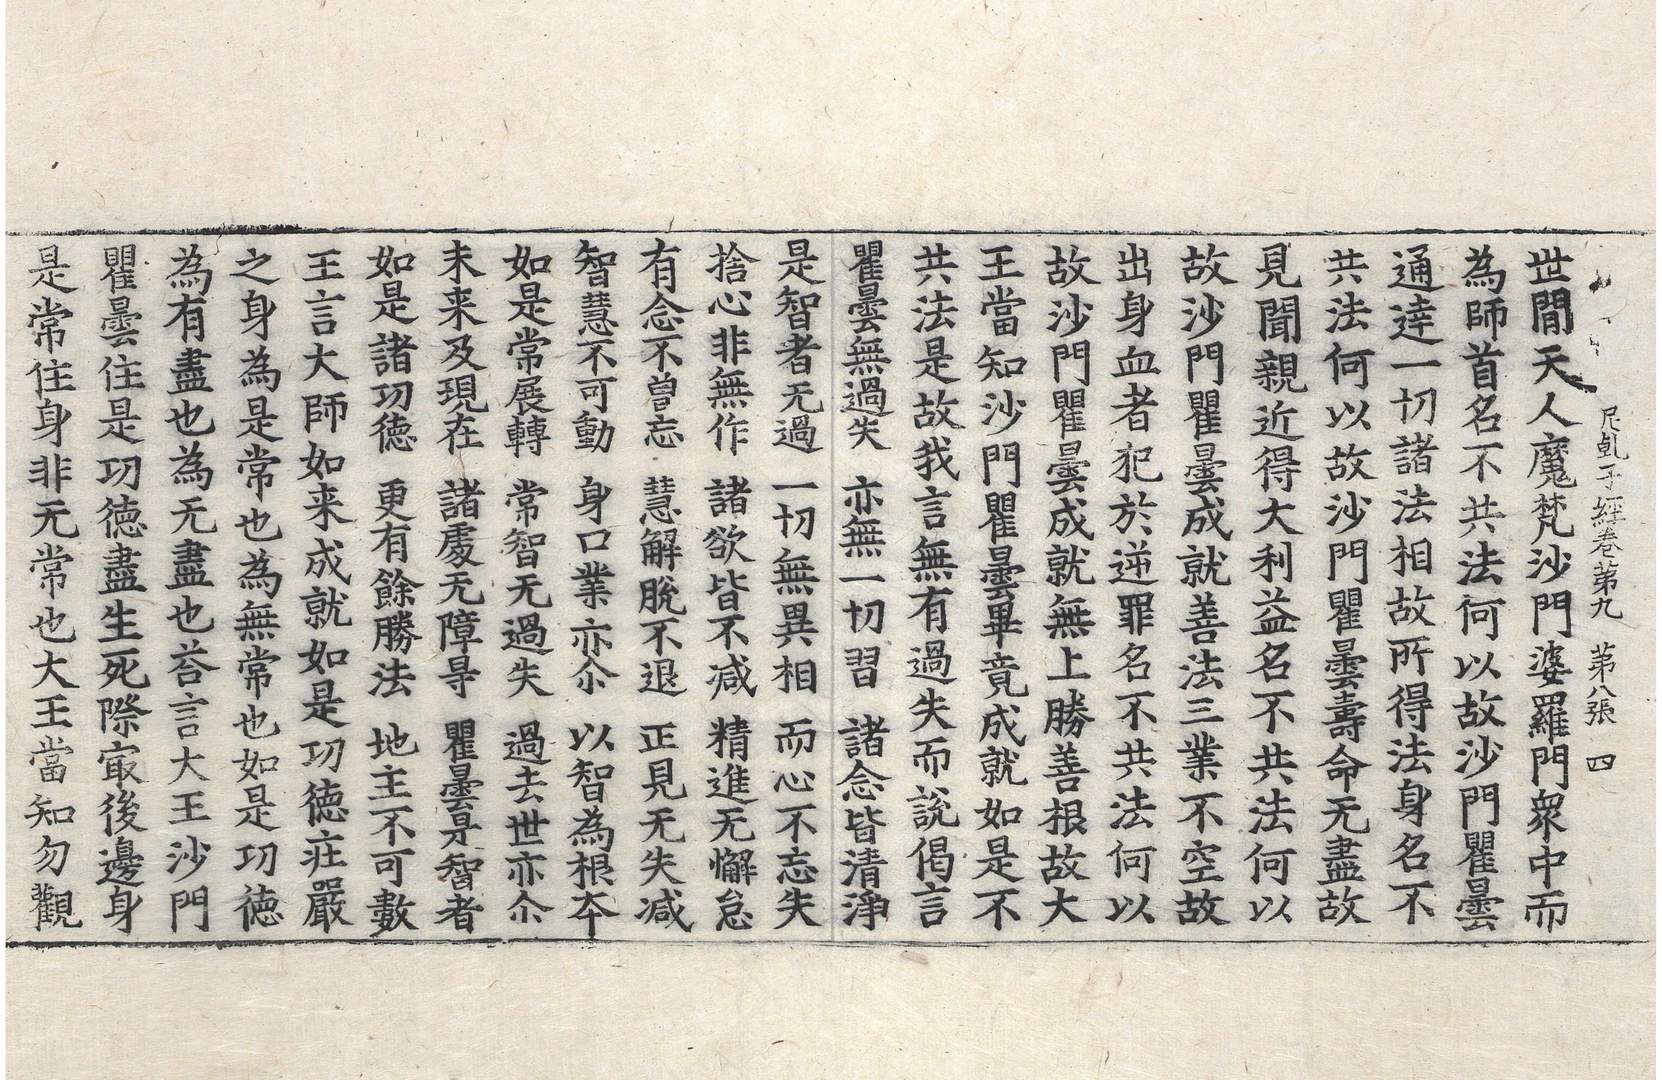 尼乹子經卷第九　第八張　四
世間天人魔梵沙門婆羅門衆中而
為師首名不共法何以故沙門瞿曇
通達一切諸法相故所得法身名不
共法何以故沙門瞿曇壽命无盡故
見聞親近得大利益名不共法何以
故沙門瞿曇成就善法三業不空故
出身血者犯於逆罪名不共法何以
故沙門瞿曇成就無上勝善根故大
王當知沙門瞿曇畢竟成就如是不
共法是故我言無有過失而說偈言
瞿曇無過失　亦無一切習　諸念皆清淨
是智者无過　一切無異相　而心不忘失
捨心非無作　諸欲皆不減　精進无懈怠
有念不曾忘　慧解脫不退　正見无失減
智慧不可動　身口業亦尒　以智為根夲
如是常展轉　常智无過失　過去世亦尒
未来及現在　諸處无障㝵　瞿曇是智者
如是諸功徳　更有餘勝法　地主不可數
王言大師如来成就如是功徳莊嚴
之身為是常也為無常也如是功徳
為有盡也為无盡也荅言大王沙門
瞿曇住是功徳盡生死際㝡後邊身
是常住身非无常也大王當知勿觀